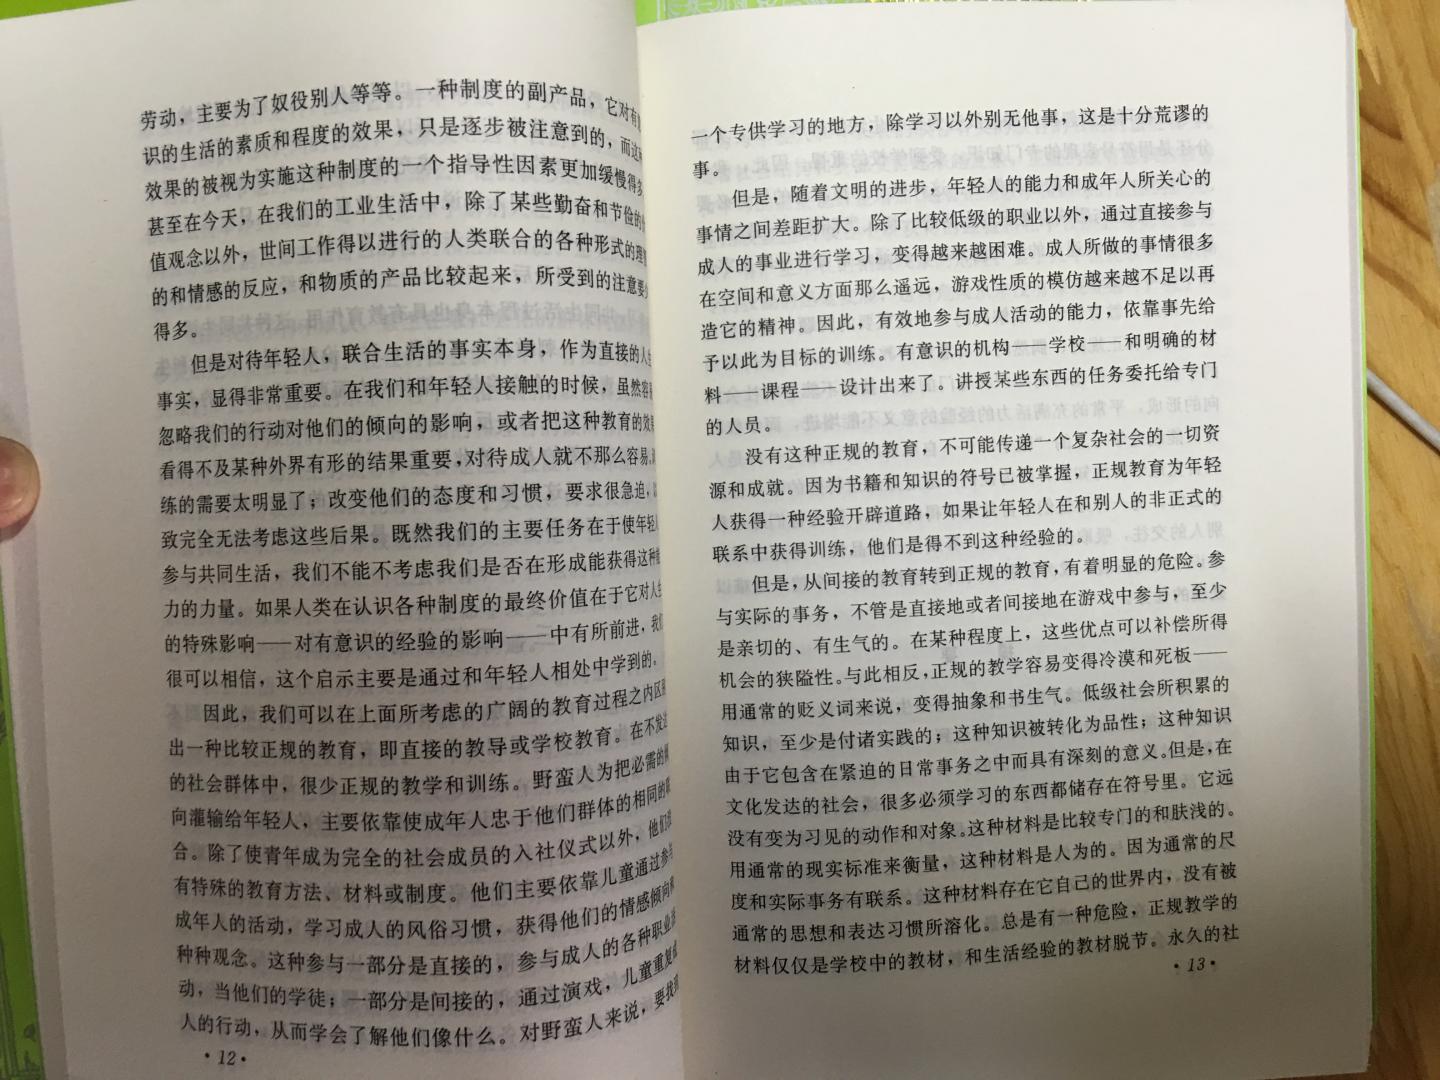 劳动，主要为了奴役别人等等。一种制度的副产品，它对有
识的生活的素质和程度的效果，只是逐步被注意到的，而这
效果的被视为实施这种制度的一个指导性因素更加缓慢得多
甚至在今天，在我们的工业生活中，除了某些勤奋和节俭的
值观念以外，世间工作得以进行的人类联合的各种形式的理
的和情感的反应，和物质的产品比较起来，所受到的注意要
得多。
但是对待年轻人，联合生活的事实本身，作为直接的人
事实，显得非常重要。在我们和年轻人接触的时候，虽然容
忽略我们的行动对他们的倾向的影响，或者把这种教育的效
看得不及某种外界有形的结果重要，对待成人就不那么容易。
练的需要太明显了；改变他们的态度和习惯，要求很急迫，
致完全无法考虑这些后果。既然我们的主要任务在于使年轻
参与共同生活，我们不能不考虑我们是否在形成能获得这种
力的力量。如果人类在认识各种制度的最终价值在于它对人
的特殊影响——对有意识的经验的影响——中有所前进，我
很可以相信，这个启示主要是通过和年轻人相处中学到的。
因此，我们可以在上面所考虑的广阔的教育过程之内区
出一种比较正规的教育，即直接的教导或学校教育。在不发
的社会群体中，很少正规的教学和训练。野蛮人为把必需的
向灌输给年轻人，主要依靠使成年人忠于他们群体的相同的
合。除了使青年成为完全的社会成员的入社仪式以外，他们
有特殊的教育方法、材料或制度。他们主要依靠儿童通过参
成年人的活动，学习成人的风俗习惯，获得他们的情感倾向
种种观念。这种参与一部分是直接的，参与成人的各种职业
动，当他们的学徒；一部分是间接的，通过演戏，儿童重复
人的行动，从而学会了解他们像什么。对野蛮人来说，要找
·12·
一个专供学习的地方，除学习以外别无他事，这是十分荒谬的
事。
但是，随着文明的进步，年轻人的能力和成年人所关心的
事情之间差距扩大。除了比较低级的职业以外，通过直接参与
成人的事业进行学习，变得越来越困难。成人所做的事情很多
在空间和意义方面那么遥远，游戏性质的模仿越来越不足以再
造它的精神。因此，有效地参与成人活动的能力，依靠事先给
予以此为目标的训练。有意识的机构——学校——和明确的材
料——课程——设计出来了。讲授某些东西的任务委托给专门
的人员。
没有这种正规的教育，不可能传递一个复杂社会的一切资
源和成就。因为书籍和知识的符号已被掌握，正规教育为年轻
人获得一种经验开辟道路，如果让年轻人在和别人的非正式的
联系中获得训练，他们是得不到这种经验的。
但是，从间接的教育转到正规的教育，有着明显的危险。参
与实际的事务，不管是直接地或者间接地在游戏中参与，至少
是亲切的、有生气的。在某种程度上，这些优点可以补偿所得
机会的狭隘性。与此相反，正规的教学容易变得冷漠和死板——
用通常的贬义词来说，变得抽象和书生气。低级社会所积累的
知识，至少是付诸实践的；这种知识被转化为品性；这种知识
由于它包含在紧迫的日常事务之中而具有深刻的意义。但是，在
文化发达的社会，很多必须学习的东西都储存在符号里。它远
没有变为习见的动作和对象。这种材料是比较专门的和肤浅的。
用通常的现实标准来衡量，这种材料是人为的。因为通常的尺
度和实际事务有联系。这种材料存在它自己的世界内，没有被
通常的思想和表达习惯所溶化。总是有一种危险，正规教学的
材料仅仅是学校中的教材，和生活经验的教材脱节。永久的社
·13·